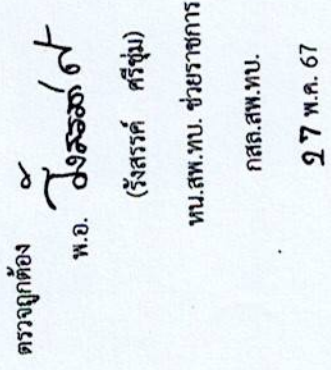 ตรวจถูกต้อง
พ.อ.
(รังสรรค์ ศรีชุ่ม)
หน.สพ.ทบ. ช่วยราชการ
กสล.สพ.ทบ.
27 พ.ค. 67